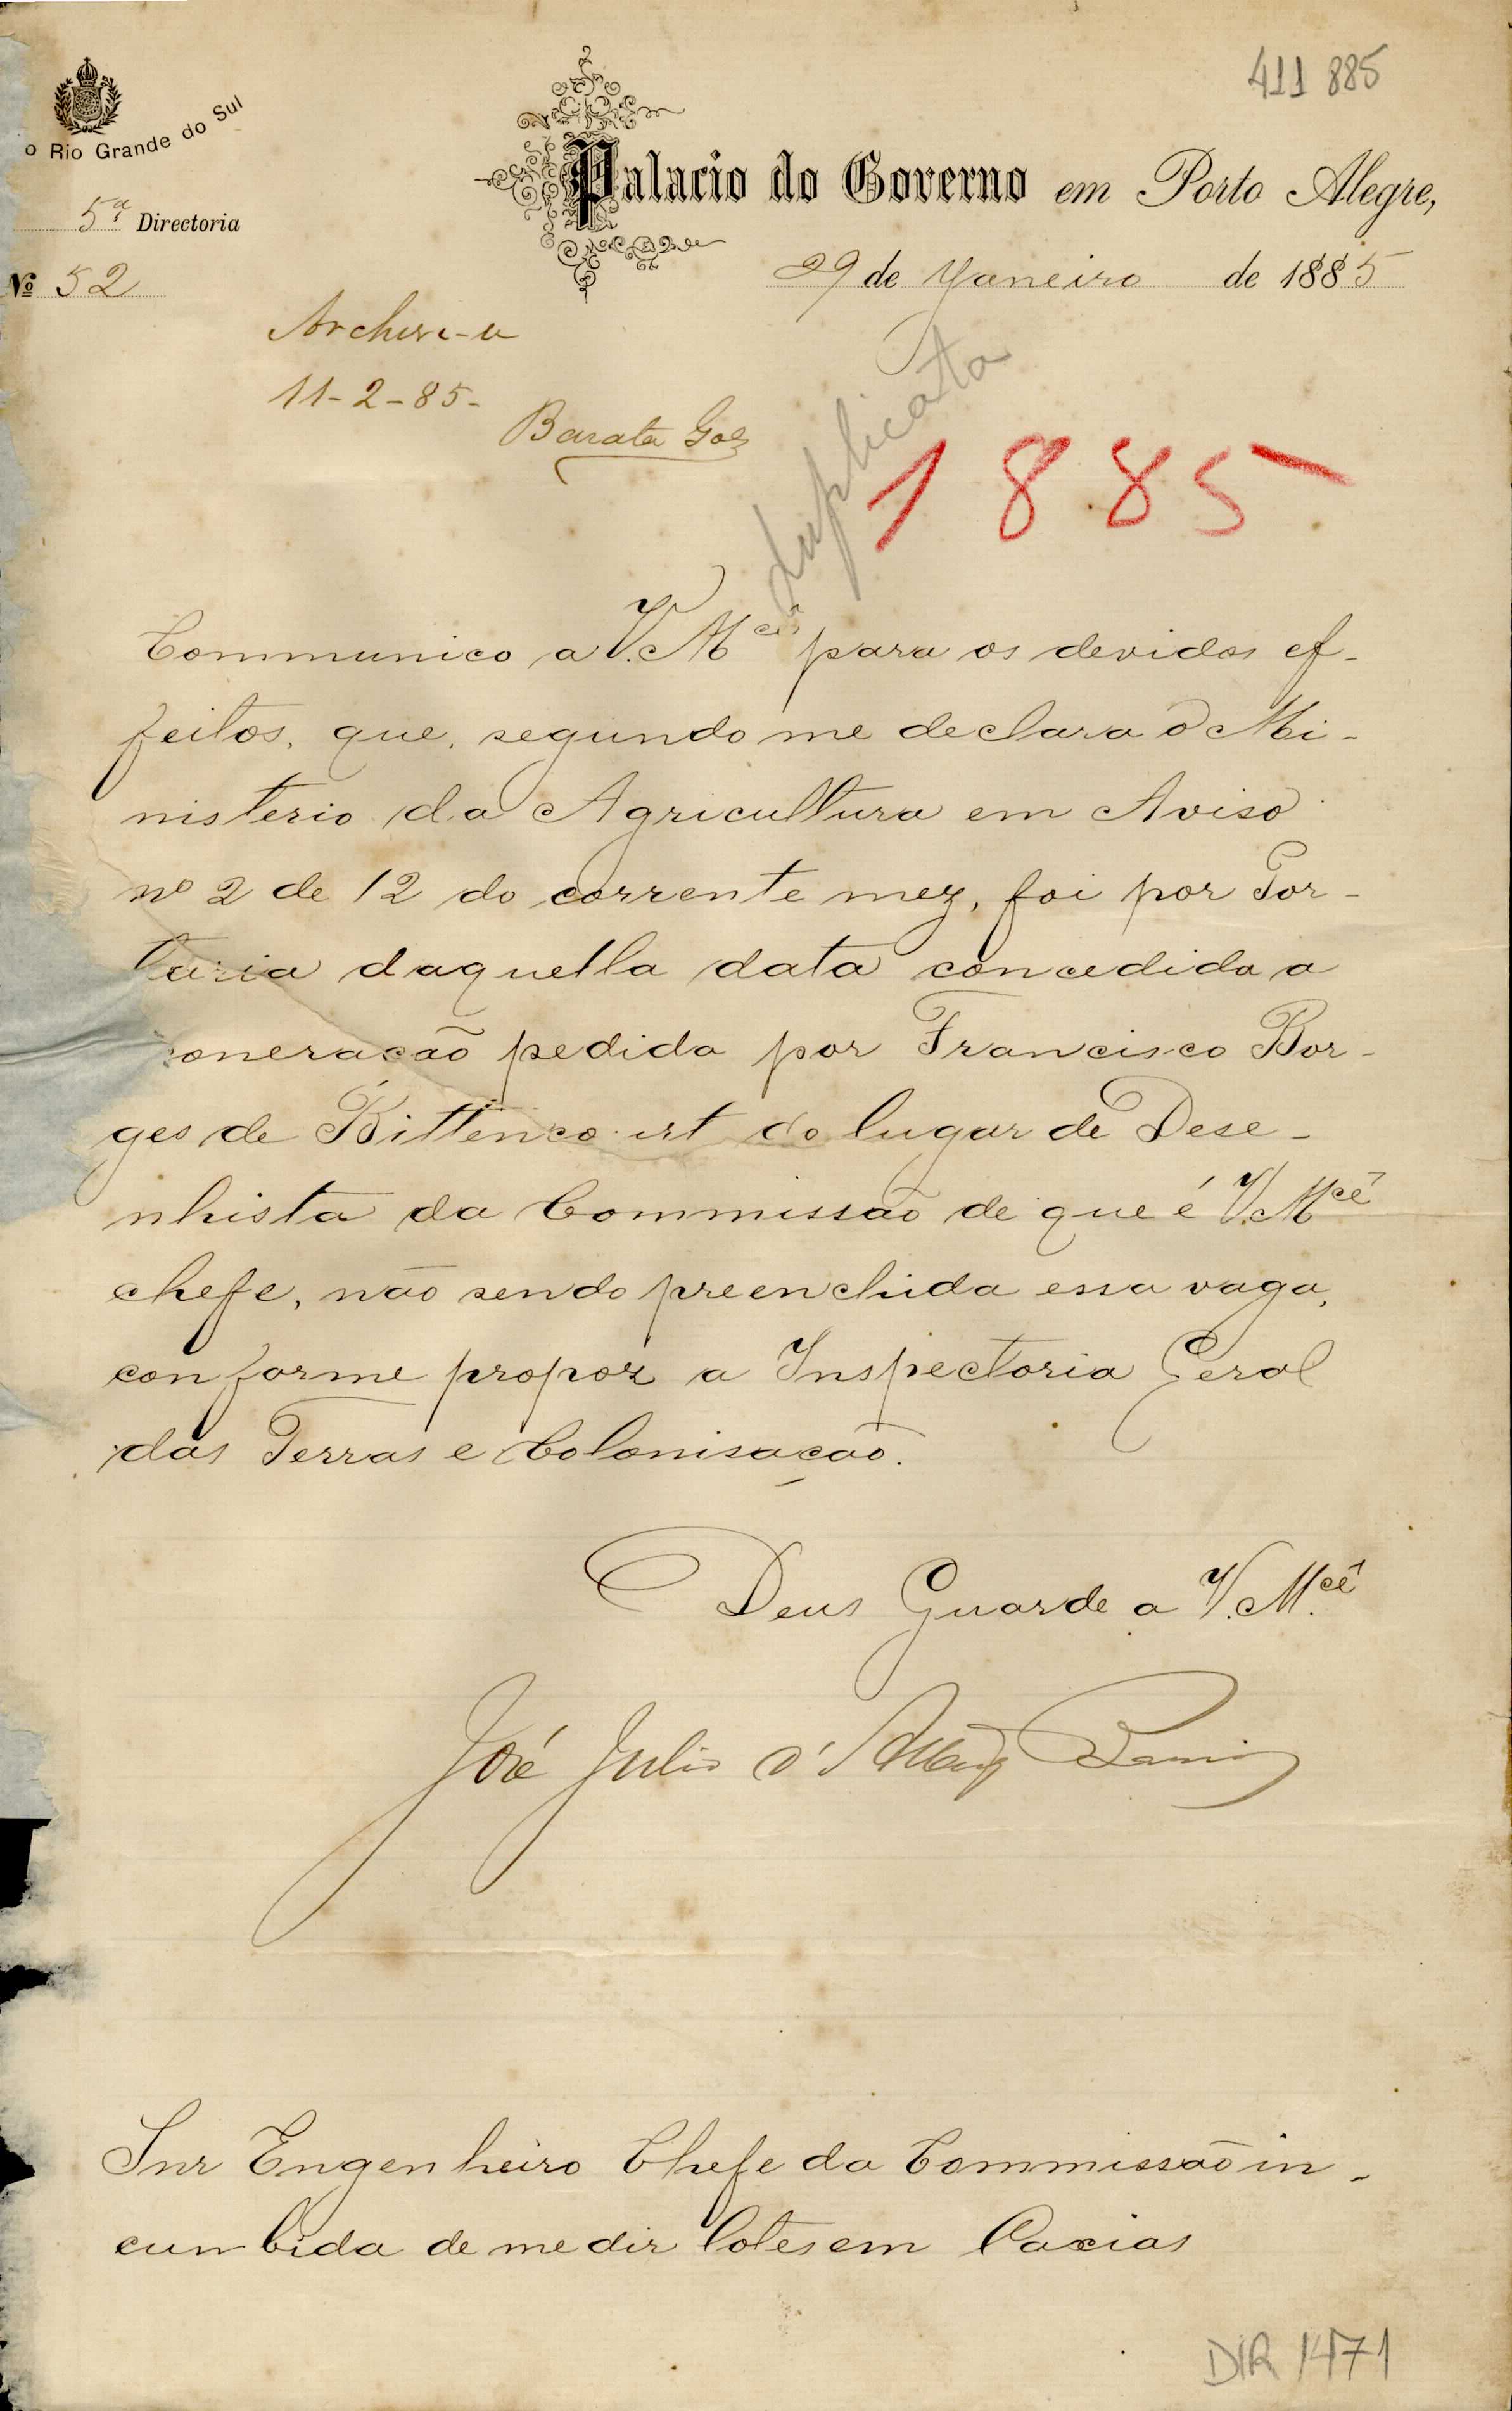 411 885
o Rio Grande do Sul
Palacio do Governo em Porto Alegre,
5ª Directoria
29 de Janeiro de 1885
Nº 52
Archive-se
11-2-85-
Barata Góes
duplicata
1885
Communico a V. Mcê para os devidos ef-
feitos, que, segundo me declara o Mi-
nisterio da Agricultura em Aviso
nº 2 de 12 do corrente mez, foi por Por-
taria daquella data concedida a
oneração pedida por Francisco Bor-
ges de Bittenco urt do lugar de Dese-
nhista da Commissão de que é V. Mcê
chefe, não sendo preenchida essa vaga,
conforme propoz a Inspectoria Geral
das Terras e Colonisação.
Deus Guarde a V. Mcê
José Julio d'Albuqe Barros
Snr Engenheiro Chefe da Commissão in-
cumbida de medir lotes em Caxias
DIR 1471